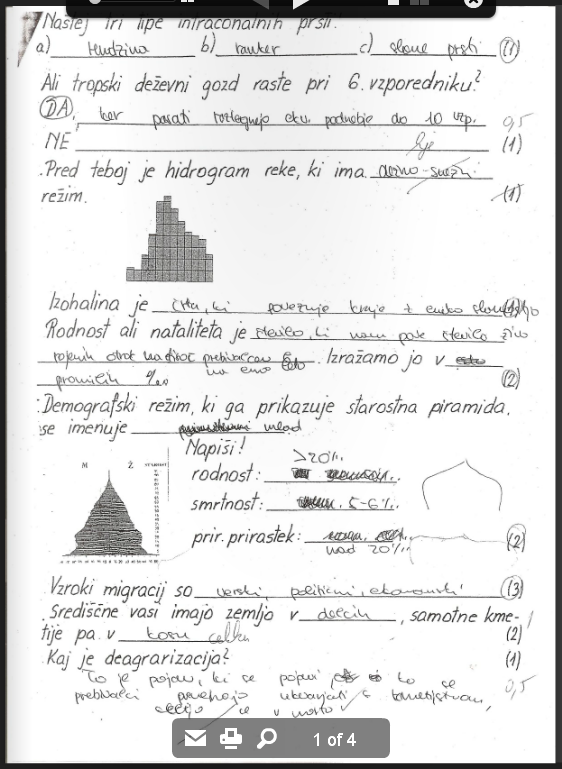 Naštej tri tipe intraconalnih prsti!
a) rendzina b) ranker c) slane prsti (1)
Ali tropski deževni gozd raste pri 6. vzporedniku?
DA, ker pasati raztegnejo ekv. podnebje do 10 vzp. 0,5
NE (1)
Pred teboj je hidrogram reke, ki ima dežno-snežni
režim. (1)
Izohalina je črta, ki povezuje kraje z enako slanostjo
Rodnost ali nataliteta je število, ki nam pove število živo
rojenih otrok na 1000 prebivalcev Izražamo jo v
na eno leto
promilih ‰ (2)
Demografski režim, ki ga prikazuje starostna piramida,
se imenuje mlad
Napiši!
M Ž
>20‰
rodnost:
smrtnost: 5-6‰
prir. prirastek: (2)
nad 20‰
Vzroki migracij so verski, politični, ekonomski (3)
Središčne vasi imajo zemljo v delcih, samotne kme-
tije pa v kosu celku (2)
Kaj je deagrarizacija? (1)
To je pojav, ki se pojavi ko se 0,5
prebivalci prenehajo ukvarjati s kmetijstvom,
v mesto
1 of 4